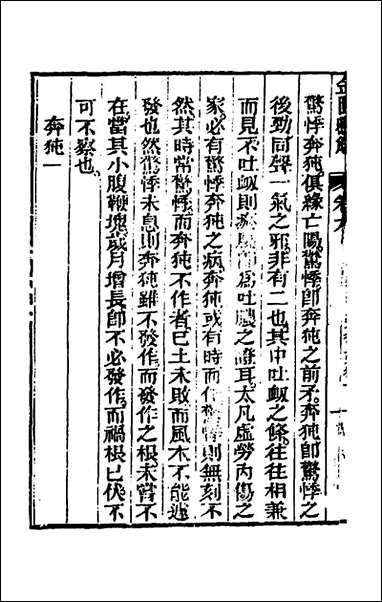 金匱懸解 卷九
驚悸奔㹠俱緣亡陽驚悸卽奔㹠之前矛奔㹠卽驚悸之
後勁同聲一氣之邪非有二也其中吐衄之條往往相兼
而見不吐衄則爲吐膿之證耳太凡虛勞內傷之
家必有驚悸奔㹠之病奔㹠或有時而作驚悸則無刻不
然其時常驚悸而奔㹠不作者已土未敗而風木不能遽
發也然驚悸未息則奔㹠雖不發作而發作之根未嘗不
在當其小腹鞕塊歲月增長卽不必發作而禍根已伏不
可不察也
奔㹠一